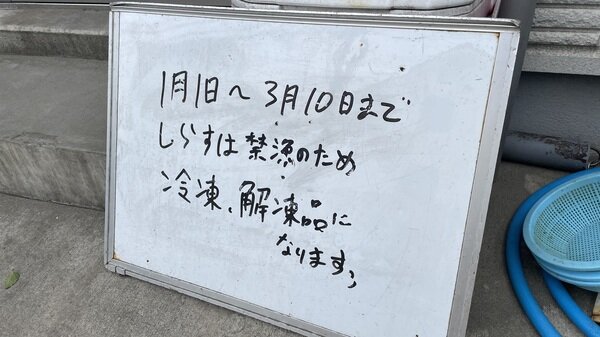 1月1日～3月10日まで
しらすは禁漁のため
冷凍、解凍品に
なります。